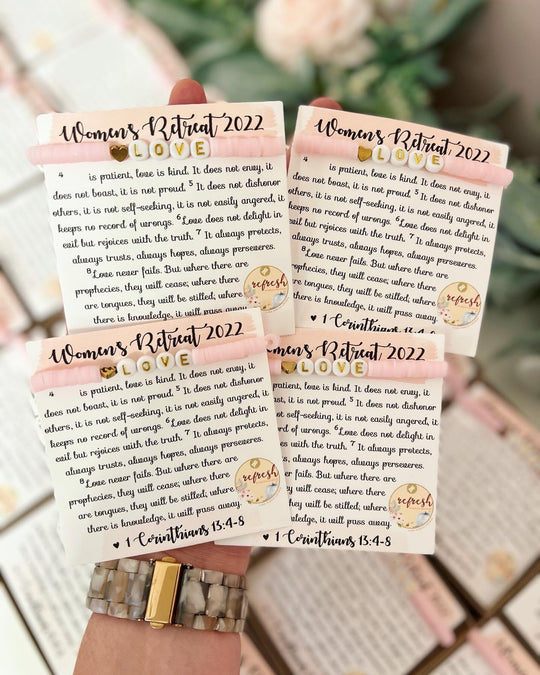 Women's Retreat 2022
LOVE
4 is patient, love is kind. It does not envy, it
does not boast, it is not proud. 5 It does not dishonor
others, it is not self-seeking, it is not easily angered, it
keeps no record of wrongs. 6 Love does not delight in
evil but rejoices with the truth. 7 It always protects,
always trusts, always hopes, always perseveres.
8 Love never fails. But where there are
prophecies, they will cease; where there
are tongues, they will be stilled; where
there is knowledge, it will pass away.
refresh
Women's Retreat 2022
LOVE
4 is patient, love is kind. It does not envy, it
does not boast, it is not proud. 5 It does not dishonor
others, it is not self-seeking, it is not easily angered, it
keeps no record of wrongs. 6 Love does not delight in
evil but rejoices with the truth. 7 It always protects,
always trusts, always hopes, always perseveres.
8 Love never fails. But where there are
prophecies, they will cease; where there
are tongues, they will be stilled; where
there is knowledge, it will pass away.
♥ 1 Corinthians 13:4-8
refresh
Women's Retreat 2022
LOVE
4 is patient, love is kind. It does not envy, it
does not boast, it is not proud. 5 It does not dishonor
others, it is not self-seeking, it is not easily angered, it
keeps no record of wrongs. 6 Love does not delight in
evil but rejoices with the truth. 7 It always protects,
always trusts, always hopes, always perseveres.
8 Love never fails. But where there are
prophecies, they will cease; where there
are tongues, they will be stilled; where
there is knowledge, it will pass away.
♥ 1 Corinthians 13:4-8
refresh
Women's Retreat 2022
LOVE
4 is patient, love is kind. It does not envy, it
does not boast, it is not proud. 5 It does not dishonor
self-seeking, it is not easily angered, it
record of wrongs. 6 Love does not delight in
rejoices with the truth. 7 It always protects,
trusts, always hopes, always perseveres.
never fails. But where there are
they will cease; where there
they will be stilled; where
knowledge, it will pass away.
♥ 1 Corinthians 13:4-8
refresh